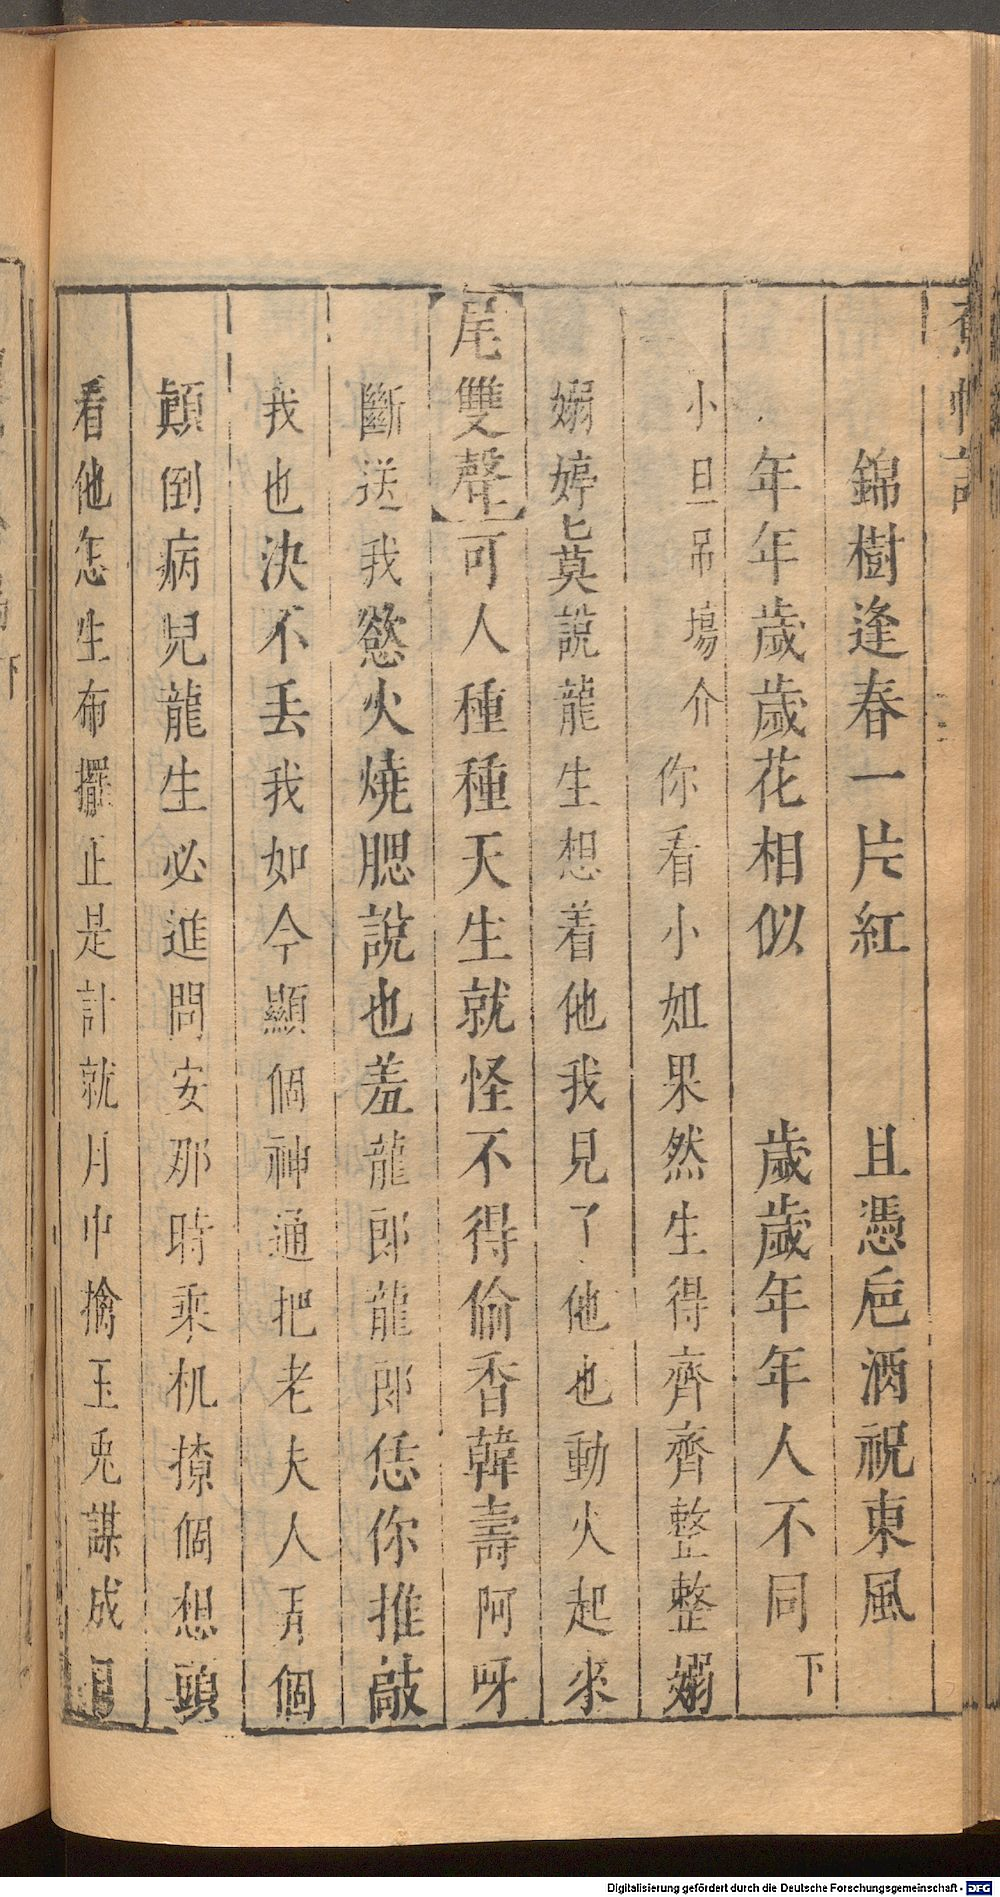 蕉帕記
錦樹逢春一片紅　且憑巵酒祝東風
年年歲歲花相似　歲歲年年人不同　下
小旦吊場介　你看小如果然生得齊齊整整嫋
嫋婷匕莫說龍生想着他我見了他也動火起來
【尾雙聲】可人種種天生就怪不得偷香韓壽阿呀
斷送我慾火燒腮說也羞龍郎龍郎恁你推敲
我也決不丢我如今顯個神通把老夫人弄個
顛倒病兒龍生必進問安那時乘机撩個想頭
看他怎生布擺正是計就月中擒玉兎謀成
Digitalisierung gefördert durch die Deutsche Forschungsgemeinschaft - DFG